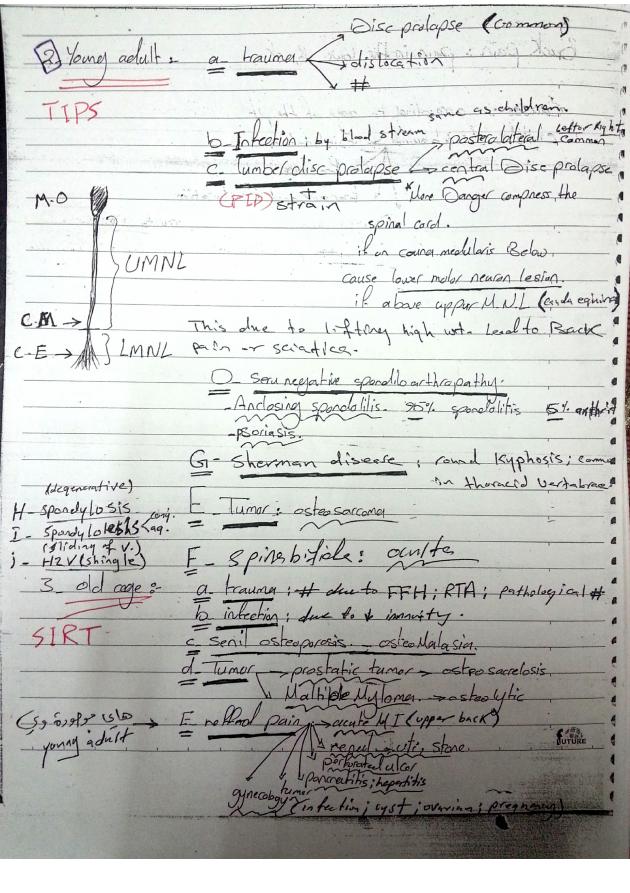 Disc prolapse (Common)
2 Young adult :- a- trauma dislocation
#
TIPS
same as children.
b- Infection ; by blood stream posterolateral Left or Right common
c- Lumber disc prolapse central Disc prolapse
(PID) + strain * More Danger compress the
M.O
spinal cord.
UMNL
if on couna medularis Below
cause lower motor neuron lesion.
if above uppur M.N.L (cauda equina)
C.M → This due to lifting high wt. Lead to Back
C-E → LMNL pain or sciatica.
D- Seru negative spondiloarthropathy.
- Anclosing spondalitis. 95% spondalitis 5%
- psoriasis.
G- Sherman disease ; round kyphosis ; common
in thoracid vertabrae
(degenerative)
H- spondylosis E- Tumor : osteosarcoma
I- cong.
aq.
(sliding of V.) F- spinabifide : oculte
j- HZV (shingle)
3- old age :- a- trauma ; # due to FFH ; RTA ; pathological #
b- infection ; due to ↓ immunity.
SIRT
c- Senil osteoporosis - osteoMalasia.
d- Tumor → prostatic tumor → osteosacrelosis.
Maltible Myloma. → osteolytic
E- reffred pain → acute MI (upper back)
young adult
stone.
perforated ulcer
pancreatitis ; hepatitis
tumor
gynecology (infection ; cyst ; ovarian ; pregnancy)
FUTURE